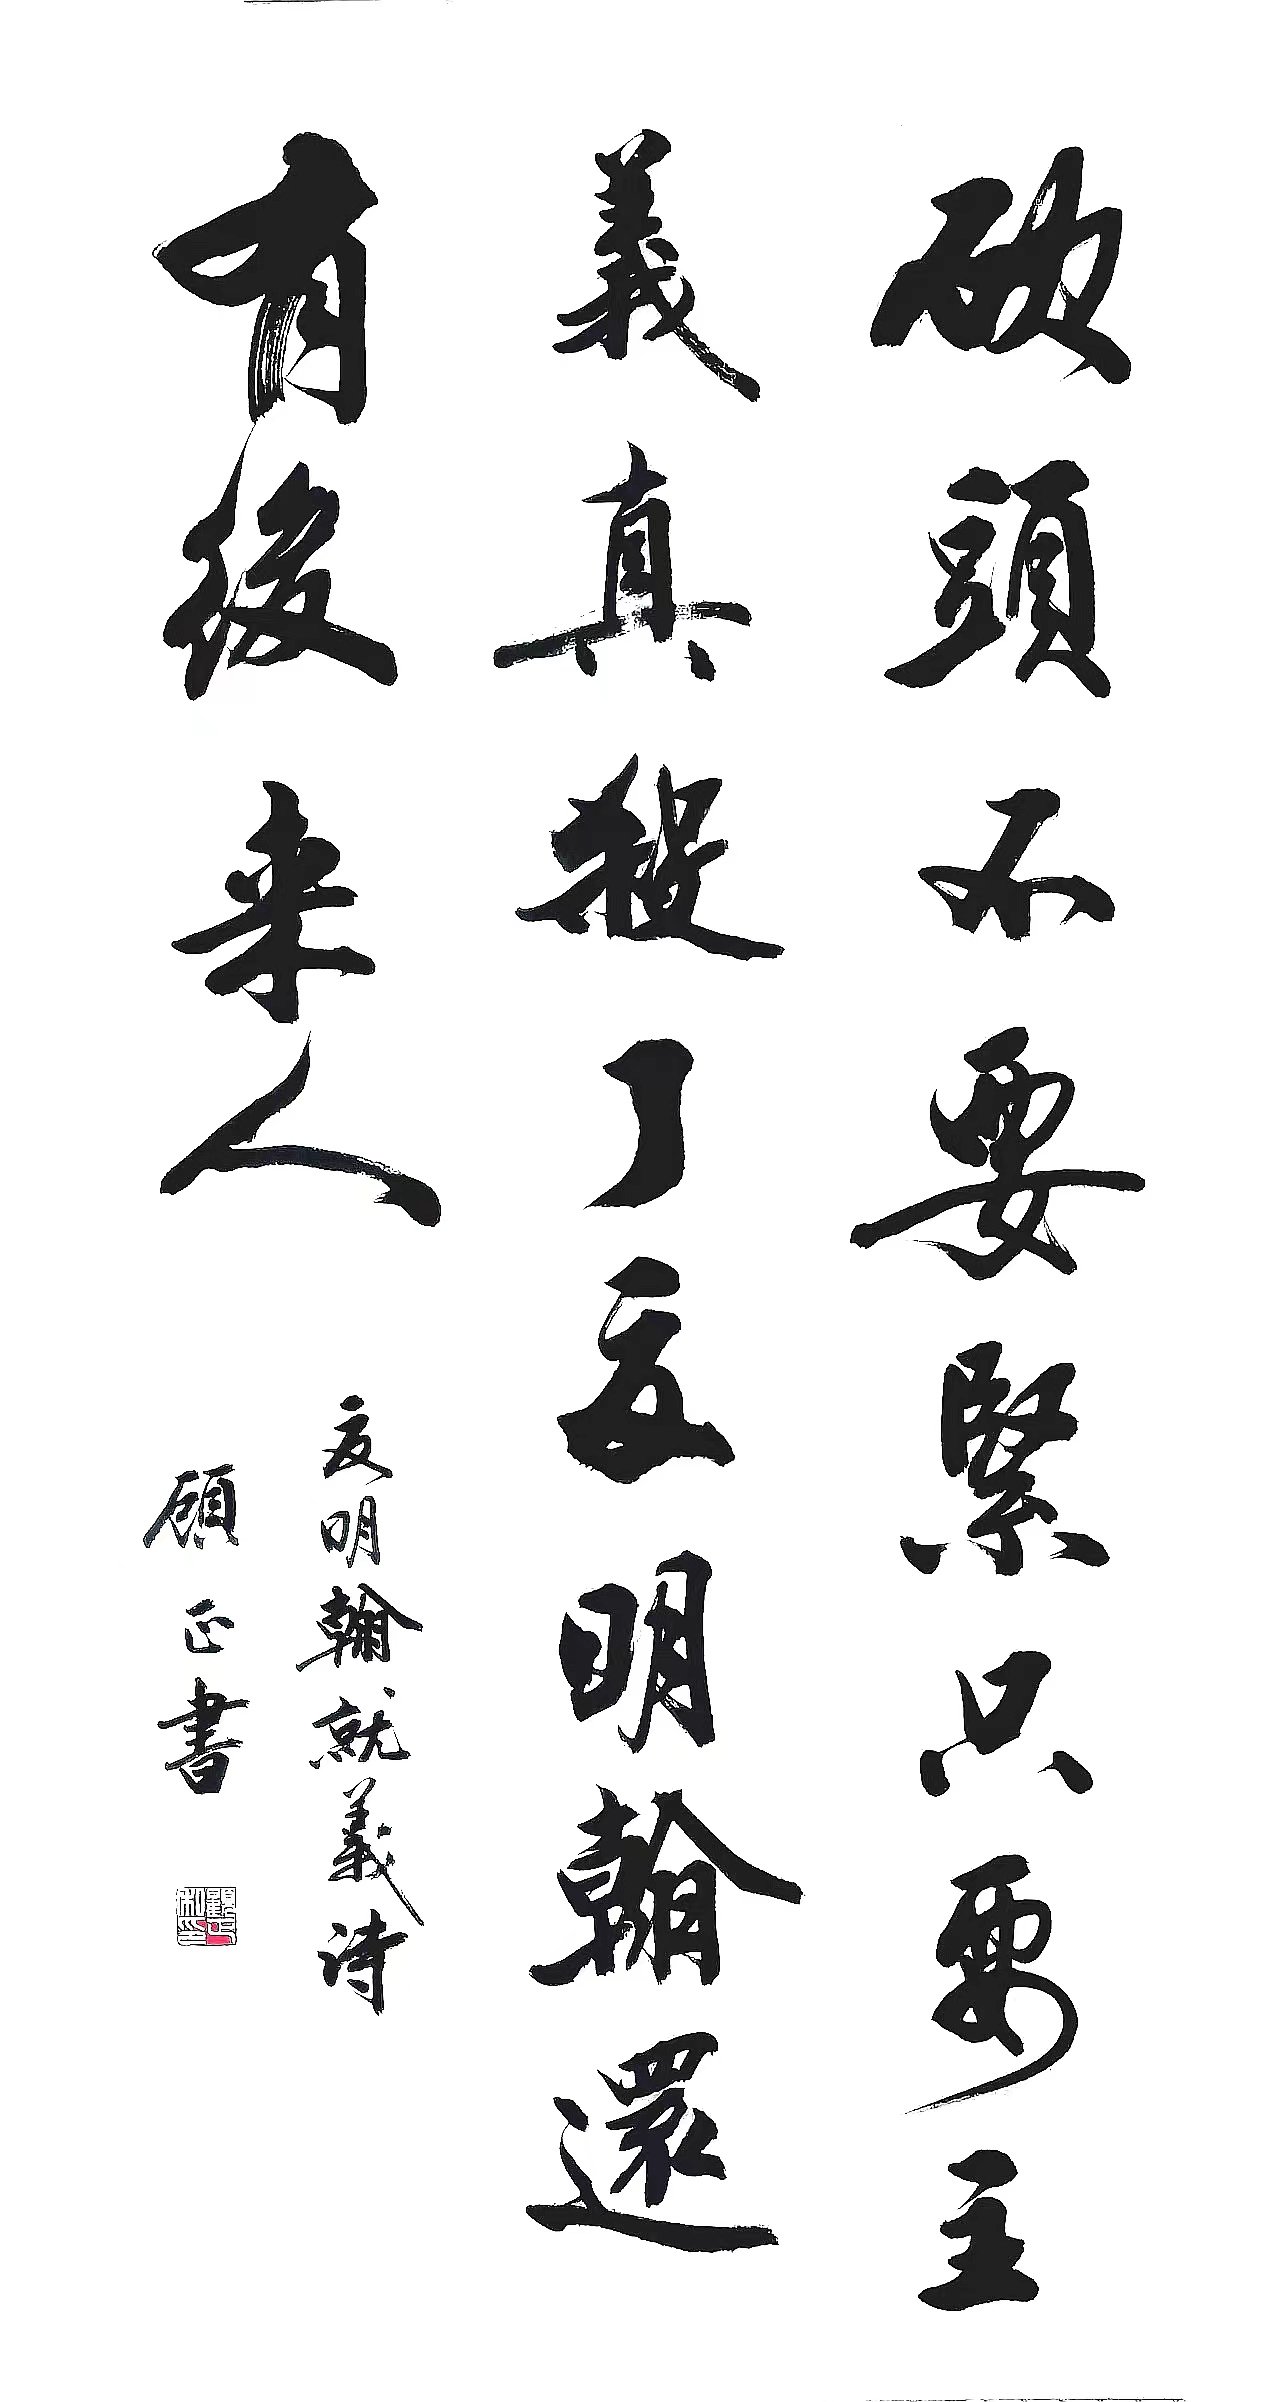 砍頭不要緊只要主
義真殺了夏明翰還
有後来人
夏明翰就義詩
顧正書